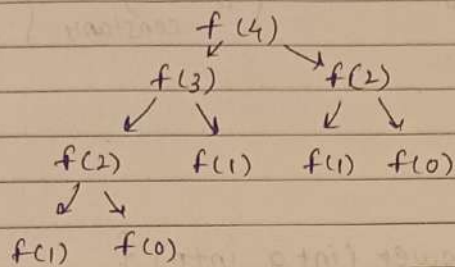 f(4)
f(3) f(2)
f(2) f(1) f(1) f(0)
f(1) f(0)